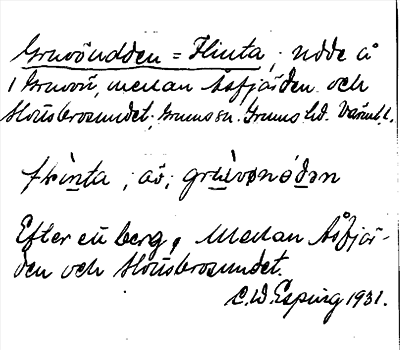 Gruvöudden = Flinta, udde å
i Gruvön, mellan Åsfjärden och
Slottsbrosundet; Grums sn. Grums hd. Värml. l.
flinta ; äv; gruvønødøn
Efter ett berg, Mellan Åsfjär-
den och Slottsbrosundet.
C.W. Esping 1931.